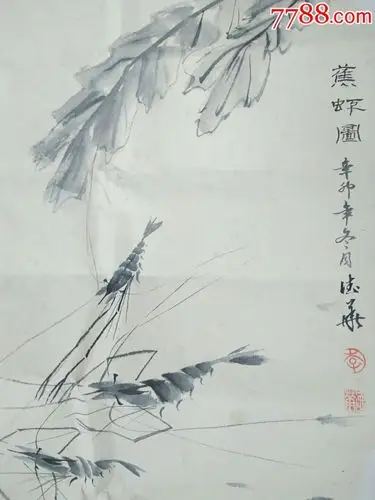 7788.com
蕉虾圖
辛卯年冬月德華